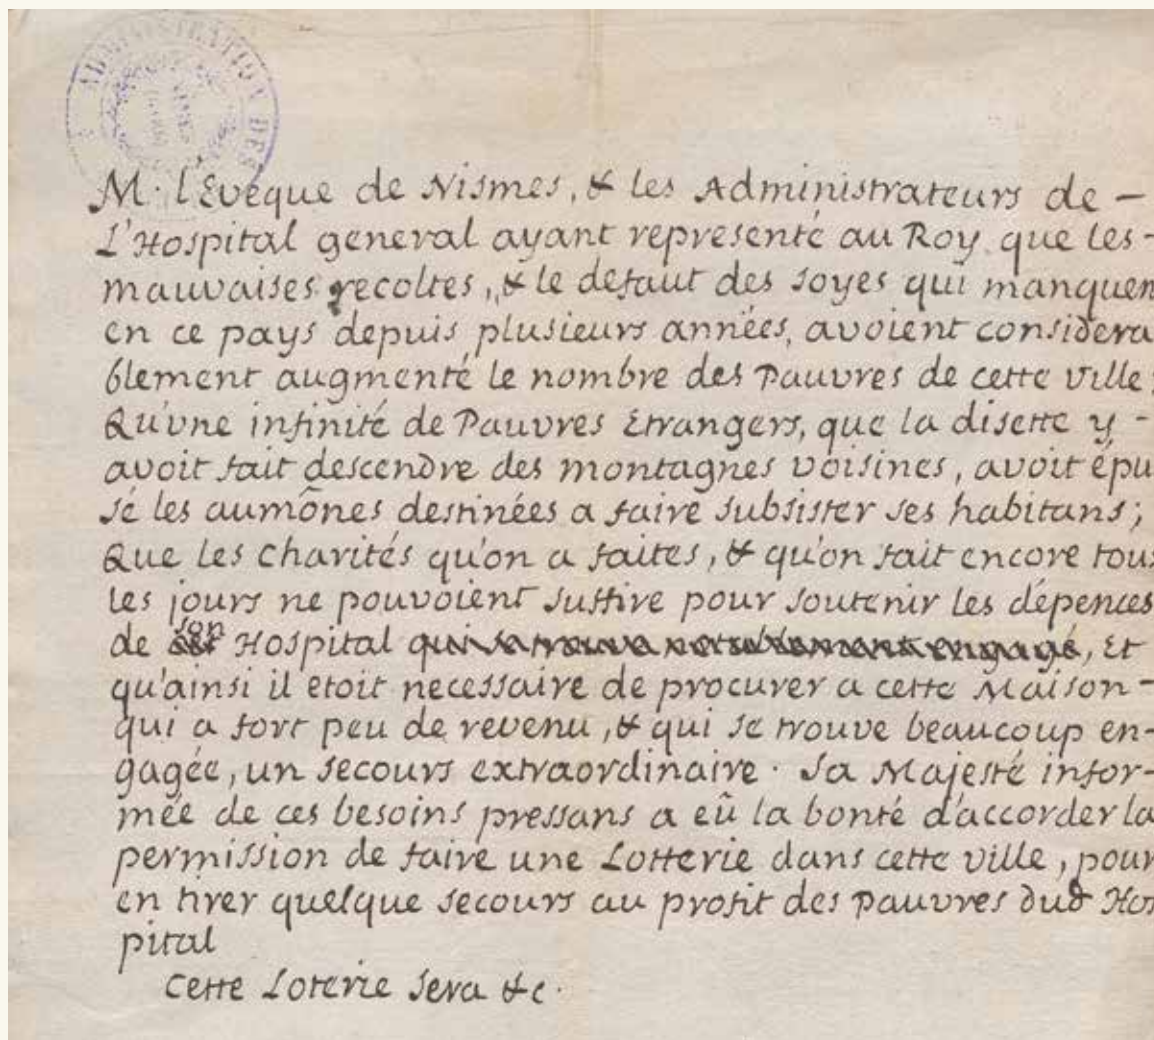 ADMINISTRATION DES
M. l'Eveque de Nismes, & les Administrateurs de -
L'Hospital general ayant representé au Roy que les -
mauvaises recoltes, & le defaut des soyes qui manquen
en ce pays depuis plusieurs années, avoient considera
blement augmenté le nombre des Pauvres de cette ville;
Qu'une infinité de Pauvres Etrangers, que la disette y -
avoit fait descendre des montagnes voisines, avoit épu
sé les aumônes destinées a faire subsister ses habitans;
Que les charités qu'on a faites, & qu'on fait encore tous
les jours ne pouvoient suffire pour soutenir les dépences
de son Hospital qui se trouve notablement engagé, Et
qu'ainsi il etoit necessaire de procurer a cette Maison -
qui a fort peu de revenu, & qui se trouve beaucoup en-
gagée, un secours extraordinaire. Sa Majesté infor-
mée de ces besoins pressans a eû la bonté d'accorder la
permission de faire une Lotterie dans cette ville, pour
en tirer quelque secours au profit des pauvres dud Hos
pital
Cette Loterie sera &c.